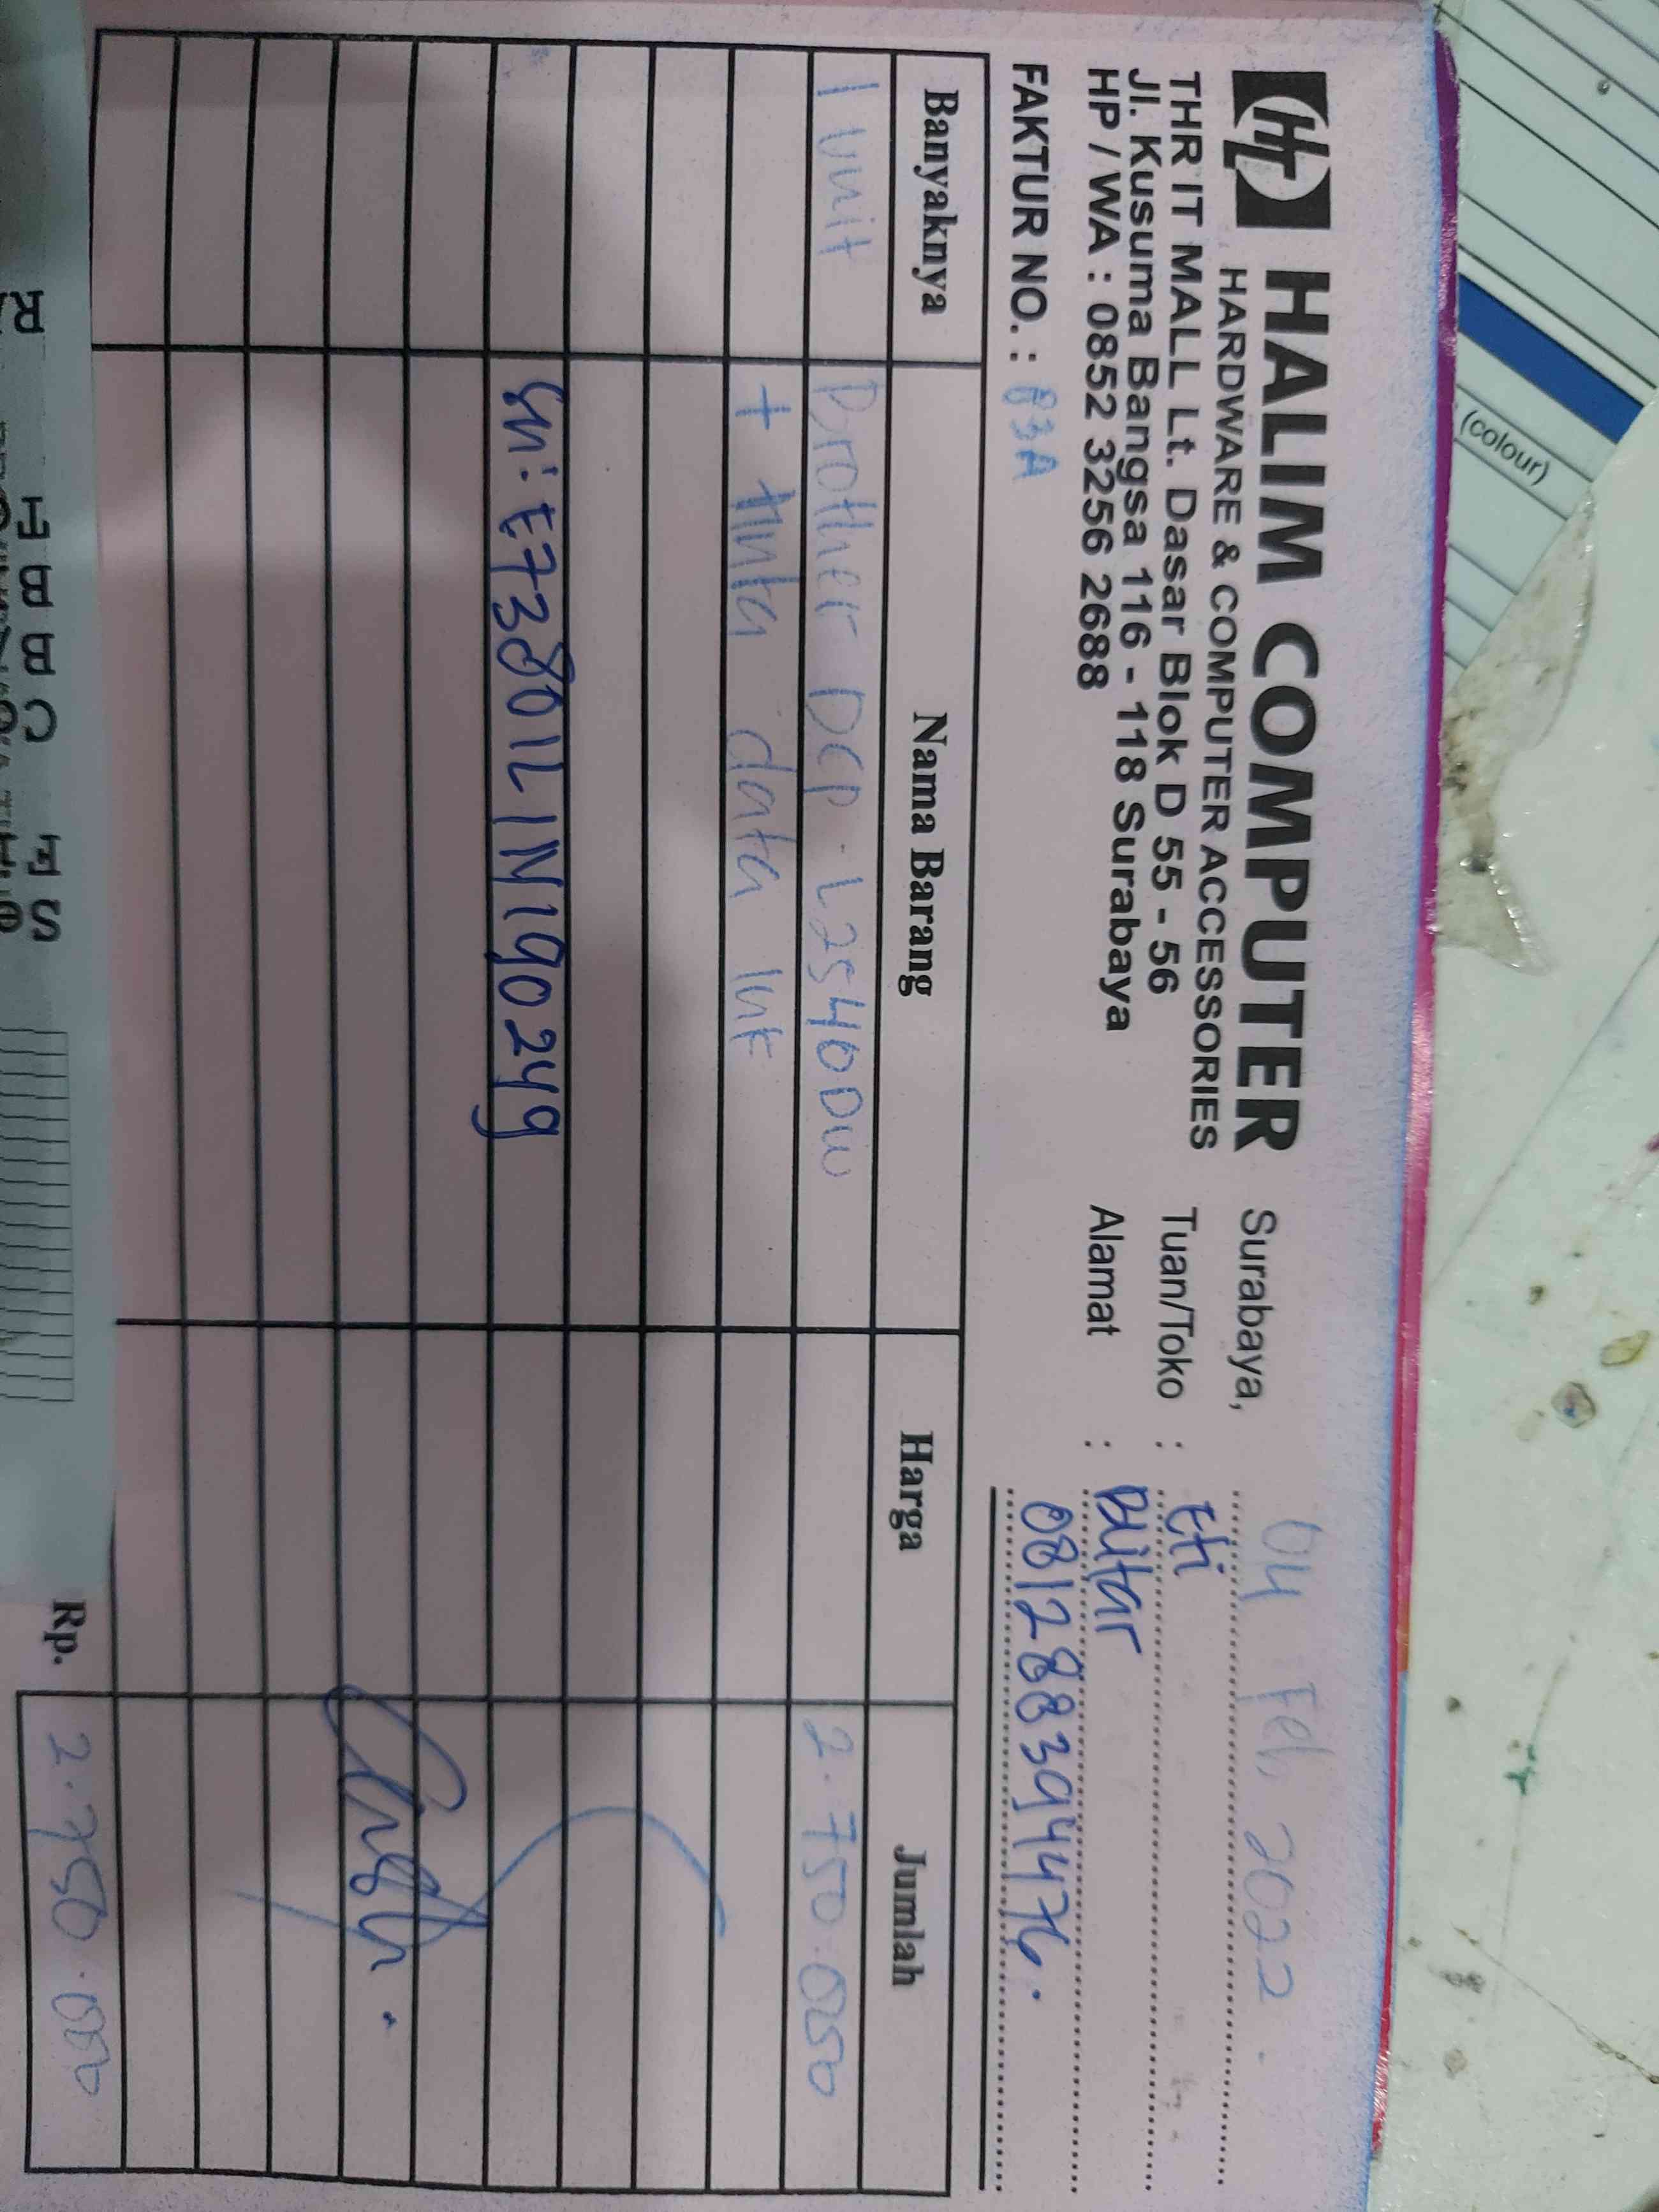 HALIM COMPUTER
HARDWARE & COMPUTER ACCESSORIES
THR IT MALL Lt. Dasar Blok D 55 - 56
Jl. Kusuma Bangsa 116 - 118 Surabaya
HP / WA : 0852 3256 2688
FAKTUR NO. : 83A
Surabaya, 04 Feb 2022.
Tuan/Toko : Eti
Alamat : Blitar
081288394476.
Banyaknya Nama Barang Harga Jumlah
1 unit Brother DCP-L2540DW 2.750.000
+ tinta data
sn: E73801L1N190249
Rp. 2.750.000
(colour)